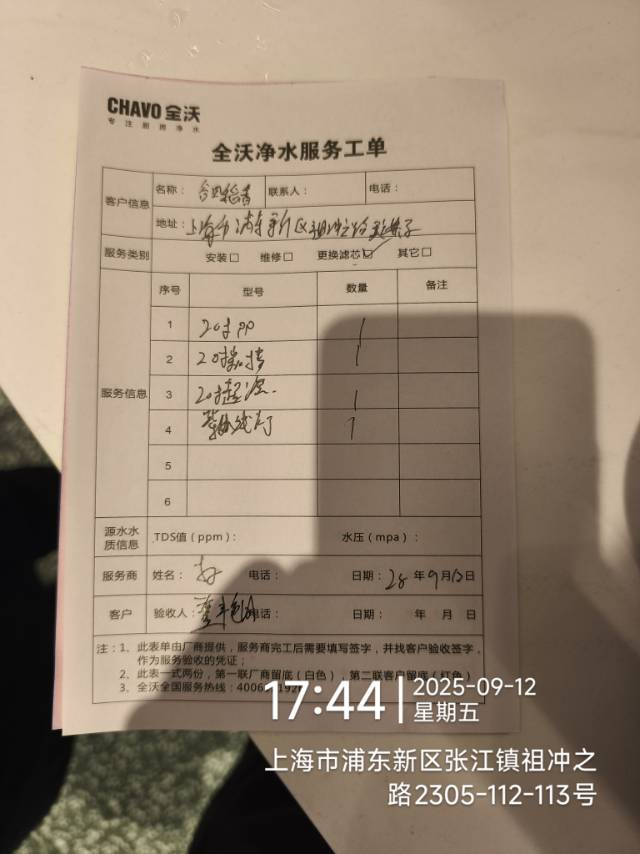 CHAVO 全沃
专注厨房净水
全沃净水服务工单
客户信息
名称： 联系人： 电话：
地址：上海市浦东新区祖冲之路
服务类别 安装□ 维修□ 更换滤芯☑ 其它□
服务信息
序号 型号 数量 备注
1 20寸PP 1
2 20寸 1
3 20寸 1
4 紫外线灯 1
5
6
源水水质信息 TDS值（ppm）： 水压（mpa）：
服务商 姓名： 电话： 日期： 年9月12日
客户 验收人： 电话： 日期： 年 月 日
注：1、此表单由厂商提供，服务商完工后需要填写签字，并找客户验收签字，
作为服务验收的凭证；
2、此表一式两份，第一联厂商留底（白色），第二联客户留底（红色）
3、全沃全国服务热线：4006
17:44
2025-09-12
星期五
上海市浦东新区张江镇祖冲之
路2305-112-113号